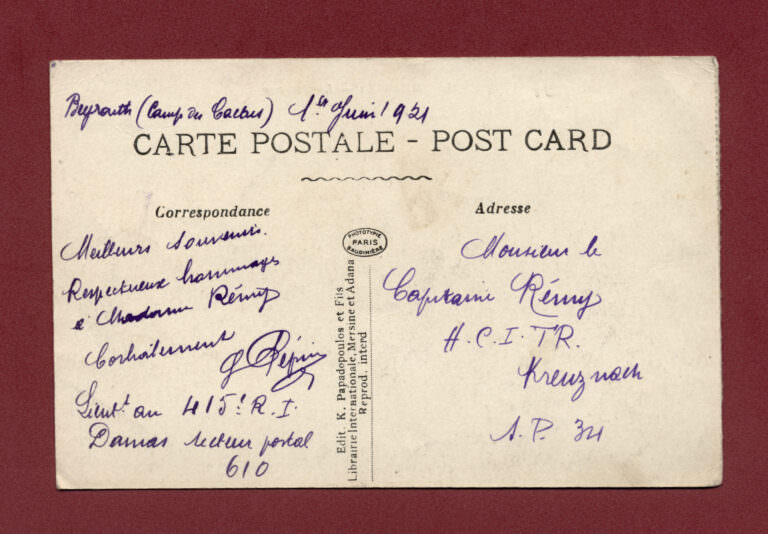 Beyrouth (Camp du Cactus) 1er Juin 1921
CARTE POSTALE - POST CARD
Correspondance
Meilleurs souvenirs.
Respectueux hommages
à Madame Rémy
Cordialement
J Pépin
Lieutt au 415e R. I.
Damas secteur postal
610
PHOTOTYPIE
PARIS
BAUDINIÈRE
Edit. K. Papadopoulos et Fils
Librairie Internationale, Mersine et Adana
Reprod. interd
Adresse
Monsieur le
Capitaine Rémy
H. C. I. T. R.
Kreuznach
S. P. 34